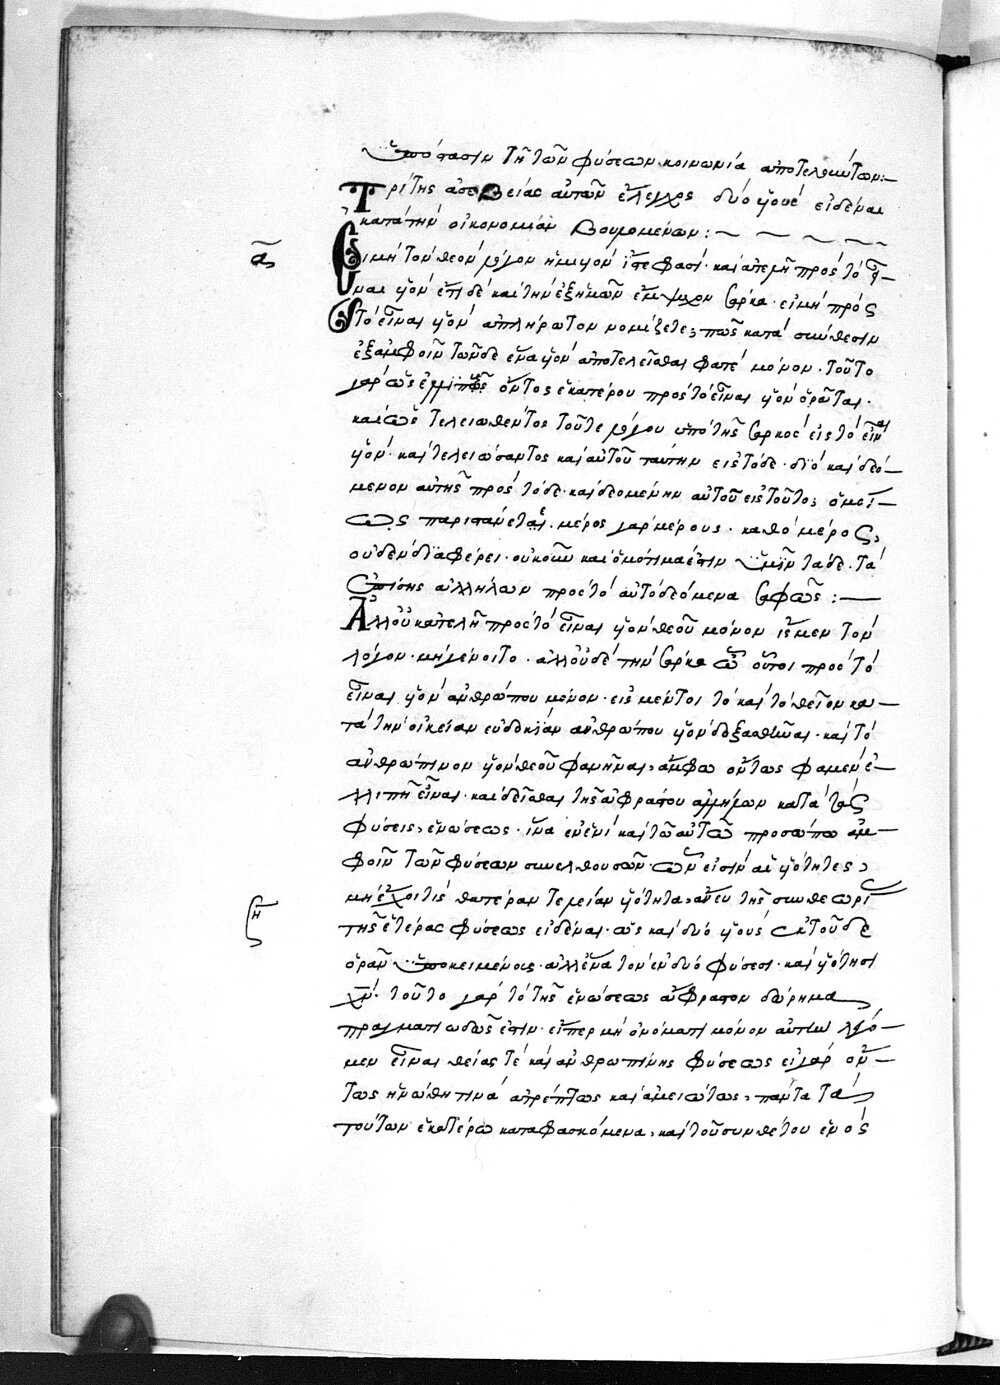 ὑπόστασιν τῇ τῶν φύσεων κοινωνίᾳ ἀποτελούντων:—
Τρίτης ἀσεβείας αὐτῶν ἔλεγχος δύο υἱοὺς εἰδέναι
κατὰ τὴν οἰκονομίαν βουλομένων:—
α
Εἰ μὴ τὸν θεὸν λόγον ἥμισυ φασὶ· καὶ ἀτελῆ πρὸς τὸ
εἶναι υἱὸν ἔτι δὲ καὶ τὴν ἐξ ἡμῶν ἔμψυχον σάρκα· εἰ μὴ πρὸς
τὸ εἶναι υἱὸν ἀπλήρωτον νομίζετε, πῶς κατὰ σύνθεσιν
ἐξ ἀμφοῖν τῶνδε ἕνα υἱὸν ἀποτελεῖσθαι φατὲ μόνον· τοῦτο
γὰρ ὡς ἐλλιποῦς ὄντος ἑκατέρου πρὸς τὸ εἶναι υἱὸν ὁρᾶται·
καὶ ὡς τελειωθέντος τοῦ τε λόγου ὑπὸ τῆς σαρκὸς εἰς τὸ εἶναι
υἱόν· καὶ τελειώσαντος καὶ αὐτοῦ ταύτην εἰς τόδε· διὸ καὶ δεό-
μενον αὐτῆς πρὸς τόδε· καὶ δεομένην αὐτοῦ εἰς τοῦτο,
παριστάνεται· μέρος γὰρ μέρους· καθὸ μέρος,
οὐδὲν διαφέρει· οὐκοῦν καὶ ὁμότιμα ἐστὶν ὑμῖν τάδε· τὰ
ἐπίσης ἀλλήλων πρὸς τὸ αὐτὸ δεόμενα σαφῶς:—
Ἀλλ' οὐκ ἀτελῆ πρὸς τὸ εἶναι υἱὸν θεοῦ μόνον ἴσμεν τὸν
λόγον· μὴ γένοιτο· ἀλλ' οὐδὲ τὴν σάρκα ὦ οὗτοι πρὸς τὸ
εἶναι υἱὸν ἀνθρώπου μόνον· εἰς μέντοι τὸ καὶ τὸ θεῖον κα-
τὰ τὴν οἰκείαν εὐδοκίαν ἀνθρώπου υἱὸν δέξασθαι· καὶ τὸ
ἀνθρώπινον υἱὸν θεοῦ φανῆναι, ἄμφω ὄντως φαμὲν ἐ-
λλιπῆ εἶναι· καὶ δεῖσθαι τῆς ἀφράστου ἀλλήλων κατὰ τὰς
φύσεις, ἑνώσεως· ἵνα ἐν ἑνὶ καὶ τῷ αὐτῷ προσώπῳ ἀμ-
φοῖν τῶν φύσεων συνελθουσῶν· ὧν εἰσὶν αἱ υἱότητες,
μὴ ἔχοι τις θατέραν τεμεῖν υἱότητα, ἄνευ τῆς συνθεωρί
τῆς ἑτέρας φύσεως εἰδέναι· ὡς καὶ δύο υἱοὺς ἐκ τοῦδε
ὁρᾶν ὑποκειμένοις· ἀλλ' ἕνα τὸν ἐν δυὸ φύσεσι· καὶ υἱότησι
χν· τοῦτο γὰρ τὸ τῆς ἑνώσεως ἄφραστον δώρημα
πραγματιωδῶς ἐστιν· εἴπερ μὴ ὀνόματι μόνον αὐτὴν λέγο-
μεν εἶναι θείας τὲ καὶ ἀνθρωπίνης φύσεως εἰ γὰρ ὄν-
τως ἡνώθη τινὰ ἀτρέπτως καὶ ἀμειώτως, πάντα τὰ
τούτων ἑκατέρῳ καταφασκόμενα, καὶ τοῦ συνθέτου ἑνὸς